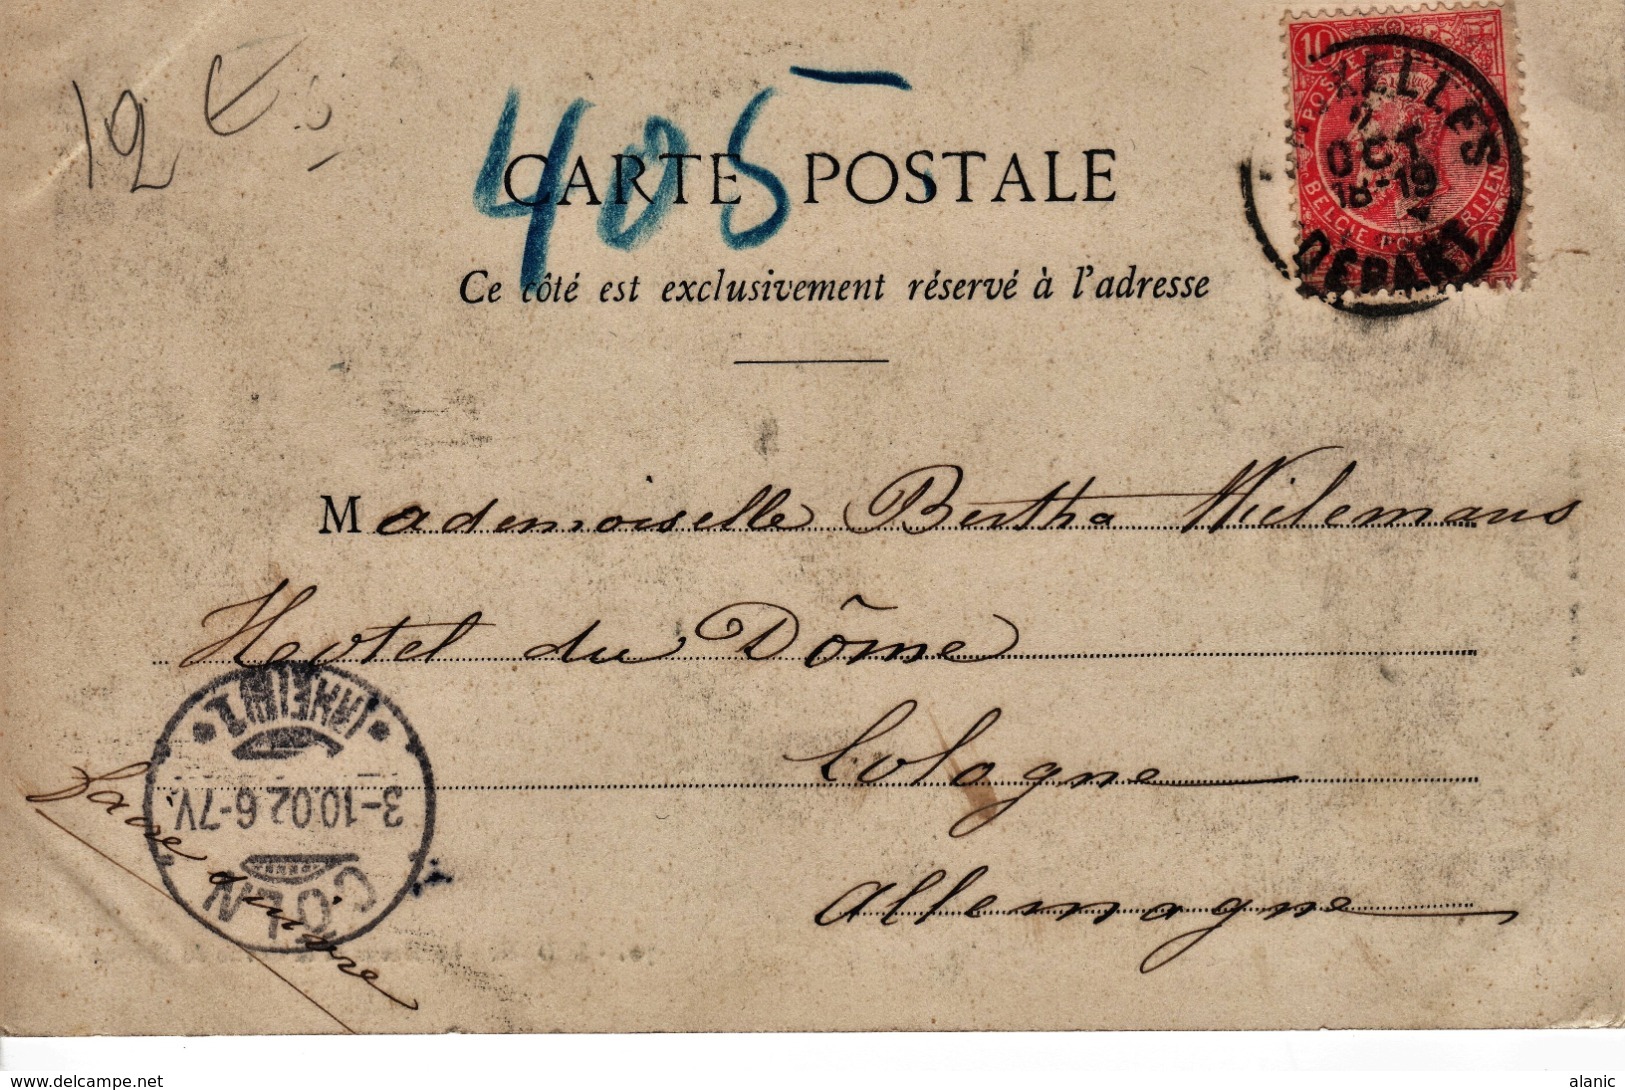 12 Es
405
CARTE POSTALE
Ce côté est exclusivement réservé à l'adresse
10
POSTE
BELGIE
XELLES
2
OCT
18-19
DEPART
Mademoiselle Bertha Wielemans
Hotel du Dôme
Cologne
Allemagne
CÖLN
3-10.02.6-7V.
(RHEIN) 1
www.delcampe.net
alanic